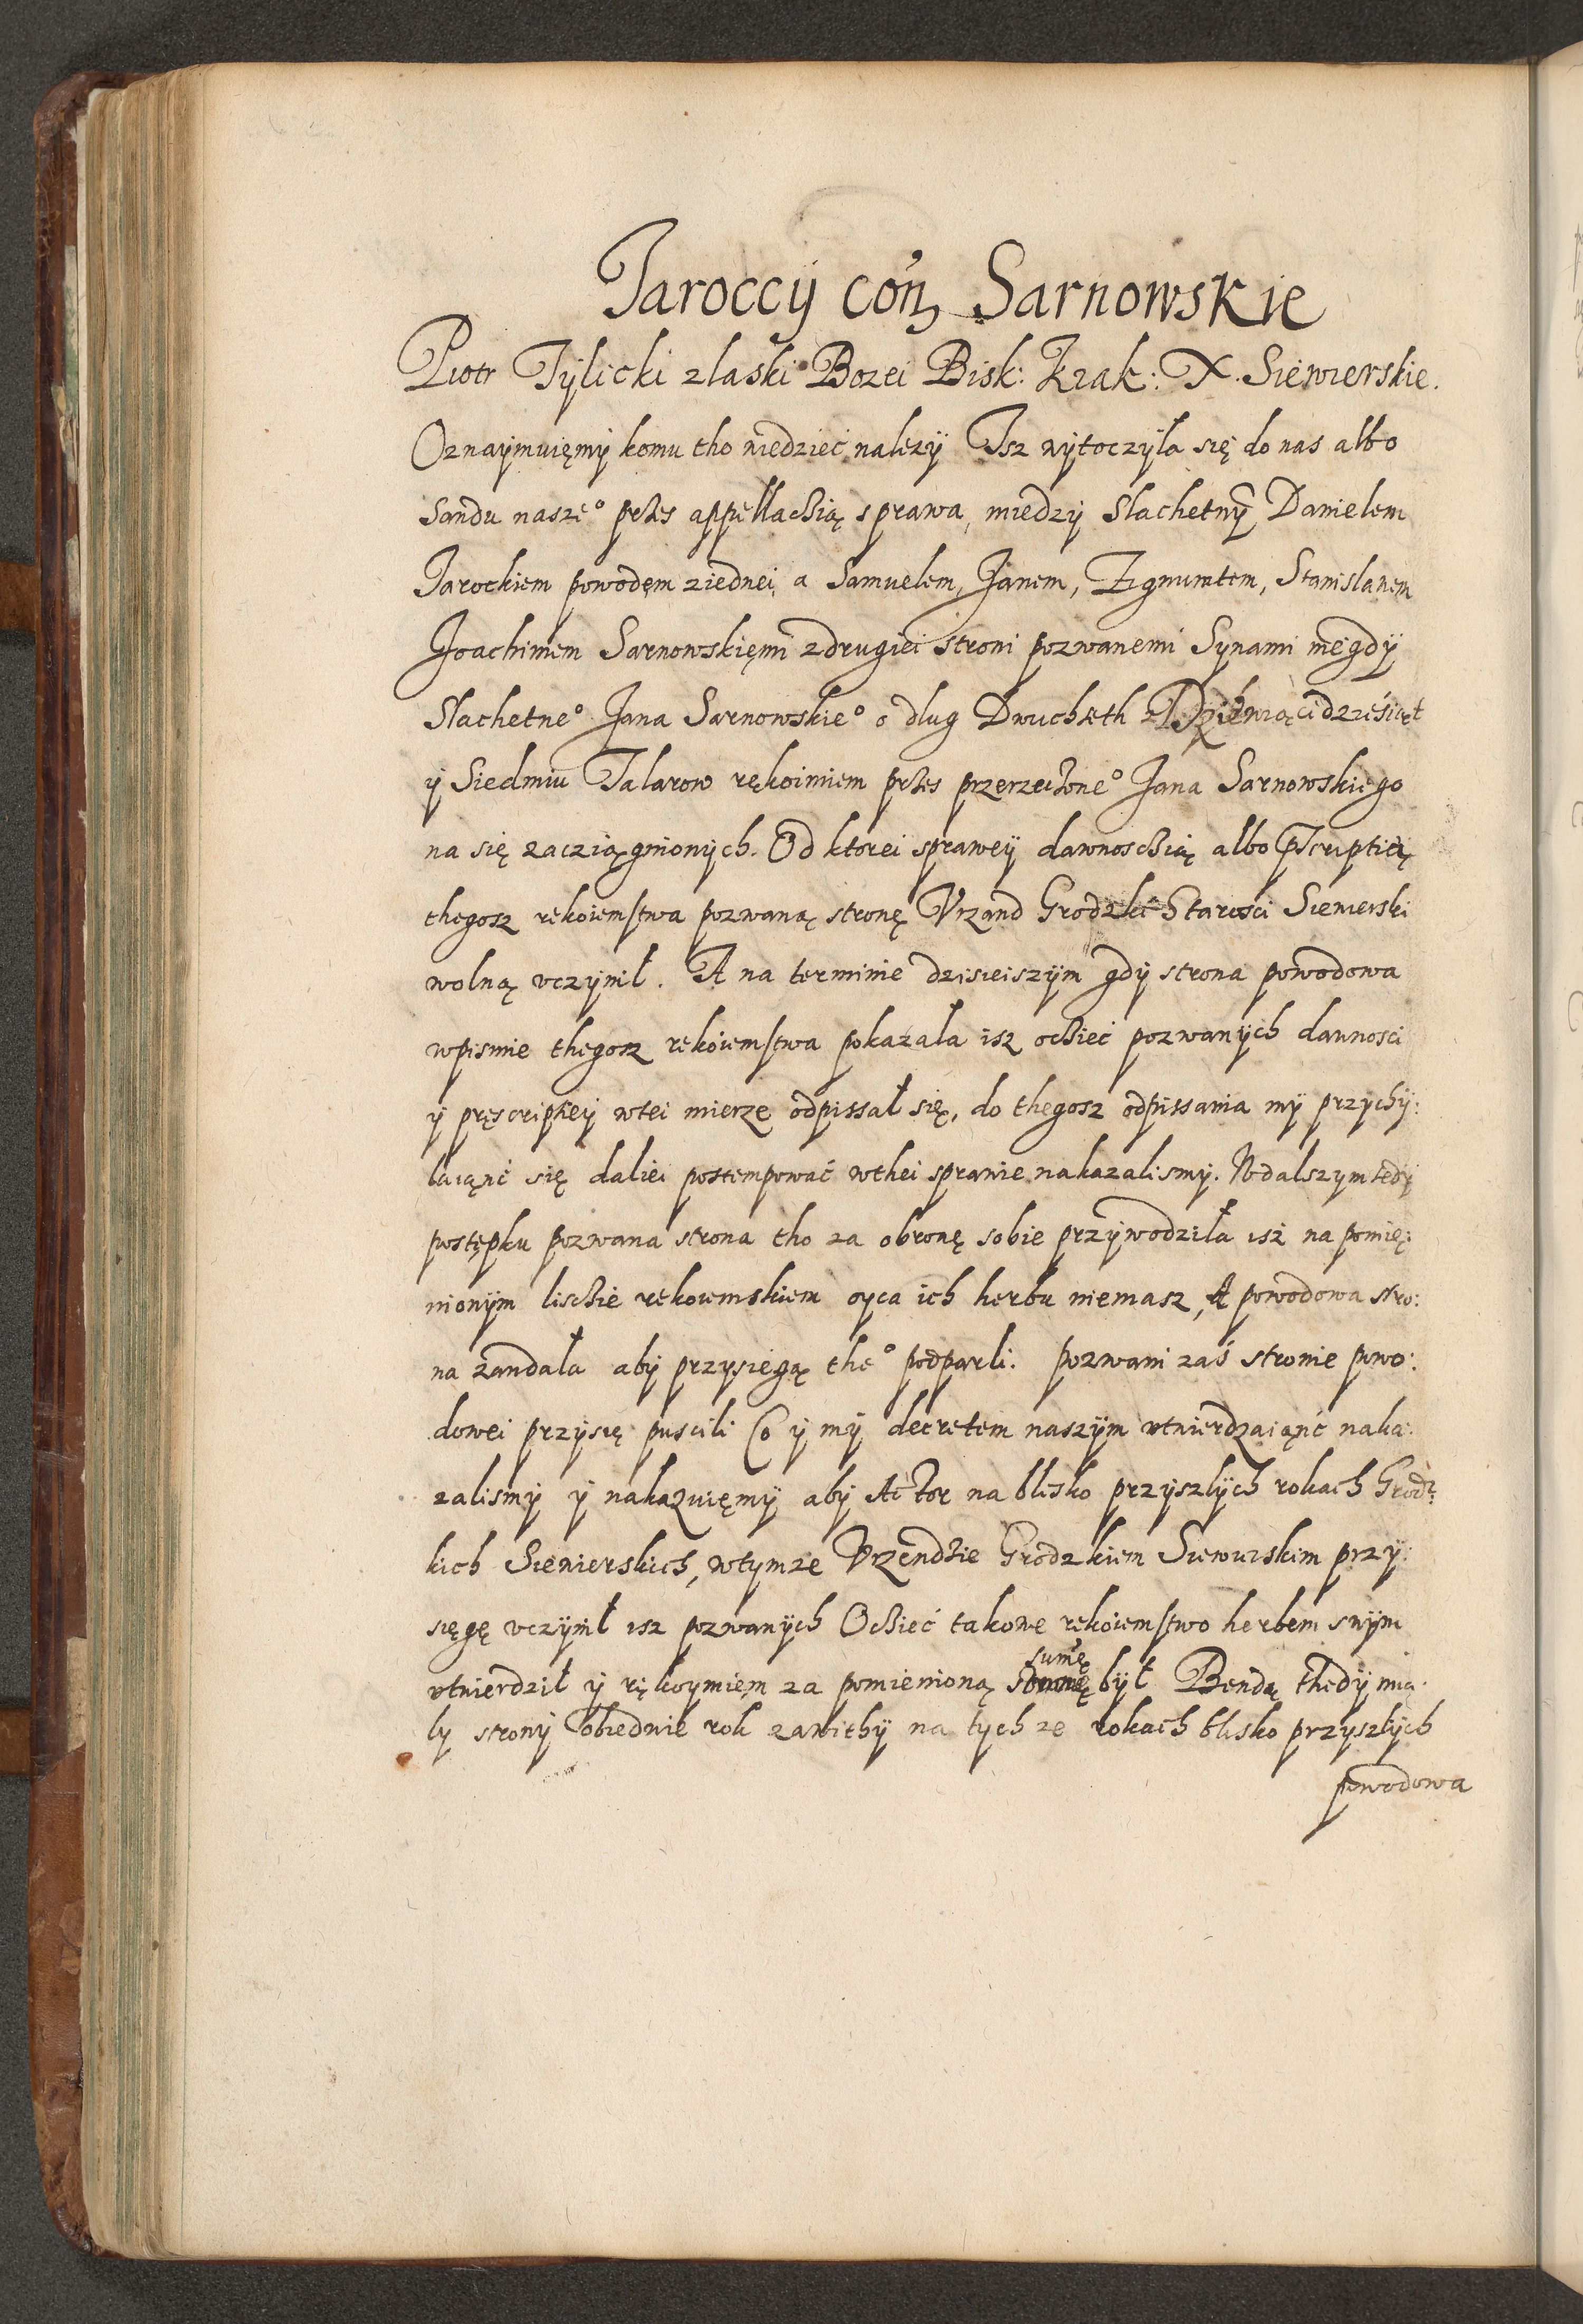 Jaroccÿ cón Sarnowskie
Piotr Tÿlicki z laski Bozei Bisk: Krak: X. Siewierskie.
Oznaÿmuięmÿ komu tho wiedzieć nalezÿ Isz wÿtoczÿła się do nas albo
Sandu nasze° przes appellacÿią sprawa, miedzÿ Slachetnÿ Danielem
Jarockiem powodem z iednei, a Samuelem, Janem, Zigmuntem, Stanislawem
Joachimem Sarnowskięmi z drugiei stroni pozwanemi Synami niegdÿ
Slachetne° Jana Sarnowskie° o dlug Dwuchseth Dziewiącidzieśiąt
ÿ Siedmiu Talarow rękoimiem przes przerzeczone° Jana Sarnowskiego
na się zacziągnionÿch. Od ktorei sprawÿ dawnoscią albo pscriptią
thegosz rekoiemstwa pozwaną stronę Vrzand Grodzki Starosci Siewierski
wolną vczÿnił. A na terminie dzisieiszÿm gdÿ strona powodowa
w pismie thegosz rekoiemstwa pokazała isz ociec pozwanÿch dawnosci
ÿ pręscripticÿ w tei mierze odpissał się, do thegosz odpissania mÿ przÿchÿ:
laiąnć się daliei postempować w thei sprawie nakazalismÿ. W dalszym tedÿ
postępku pozwana strona tho za obronę sobie przÿwodziła isz na pomię:
nionÿm liscie rekoiemskiem oyca ich herbu niemasz, A powodowa stro:
na żandała abÿ przysięgą the° podparli. pozwani zaś stronie powo:
dowei przÿsię puscili Co ÿ mÿ decretem naszÿm vtwierdzaiąnć naka:
zalismÿ ÿ nakazuięmÿ abÿ Actor na blisko przÿszlÿch rokach Grodz:
kich Siewierskich, w tymze Vrzendzie Grodzkiem Siewierskim przÿ:
sięgę vczÿnił isz pozwanÿch Ociec takowe rękoiemstwo herbem swÿm
vtwierdził ÿ rękoymiem za pomienioną sumę był Bendą thedÿ mia:
lÿ stronÿ obiedwie rok zawithÿ na tÿch ze rokach blisko przyszlÿch
powodowa